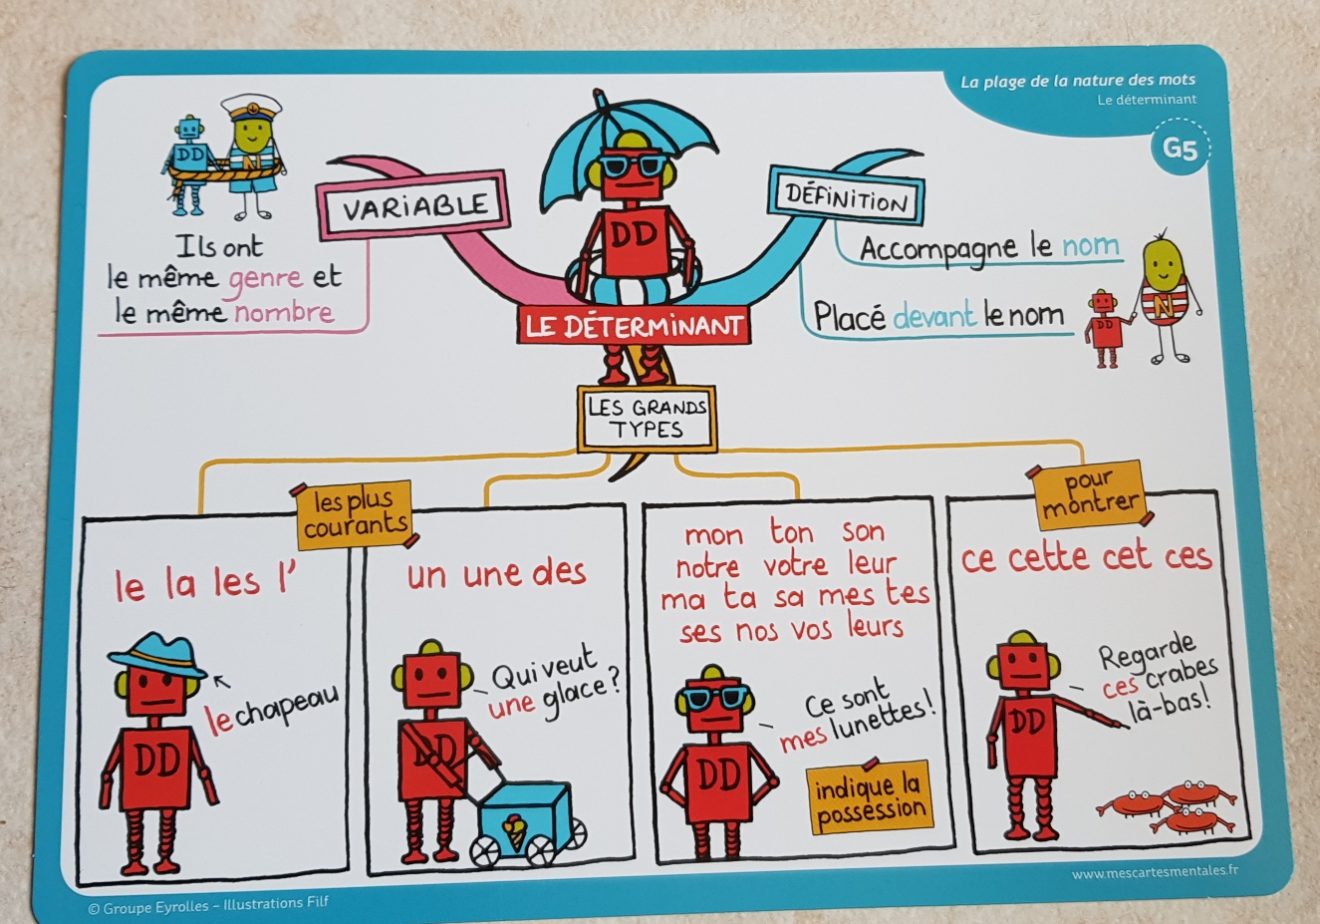 La plage de la nature des mots
Le déterminant
G5
DD
N
Ils ont
le même genre et
le même nombre
VARIABLE
DD
LE DÉTERMINANT
DÉFINITION
Accompagne le nom
Placé devant le nom
DD
N
LES GRANDS
TYPES
les plus
courants
le la les l'
le chapeau
DD
un une des
Qui veut
une glace ?
DD
mon ton son
notre votre leur
ma ta sa mes tes
ses nos vos leurs
Ce sont
mes lunettes !
DD
indique la
possession
pour
montrer
ce cette cet ces
Regarde
ces crabes
là-bas !
DD
© Groupe Eyrolles – Illustrations Filf
www.mescartesmentales.fr